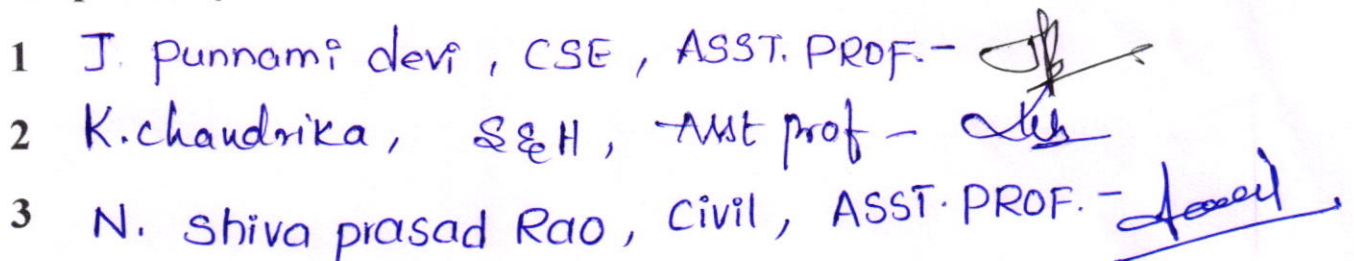 1 J. Punnami devi, CSE, ASST. PROF. -
2 K. chandrika, S&H, Asst prof -
3 N. Shiva prasad Rao, Civil, ASST. PROF. -